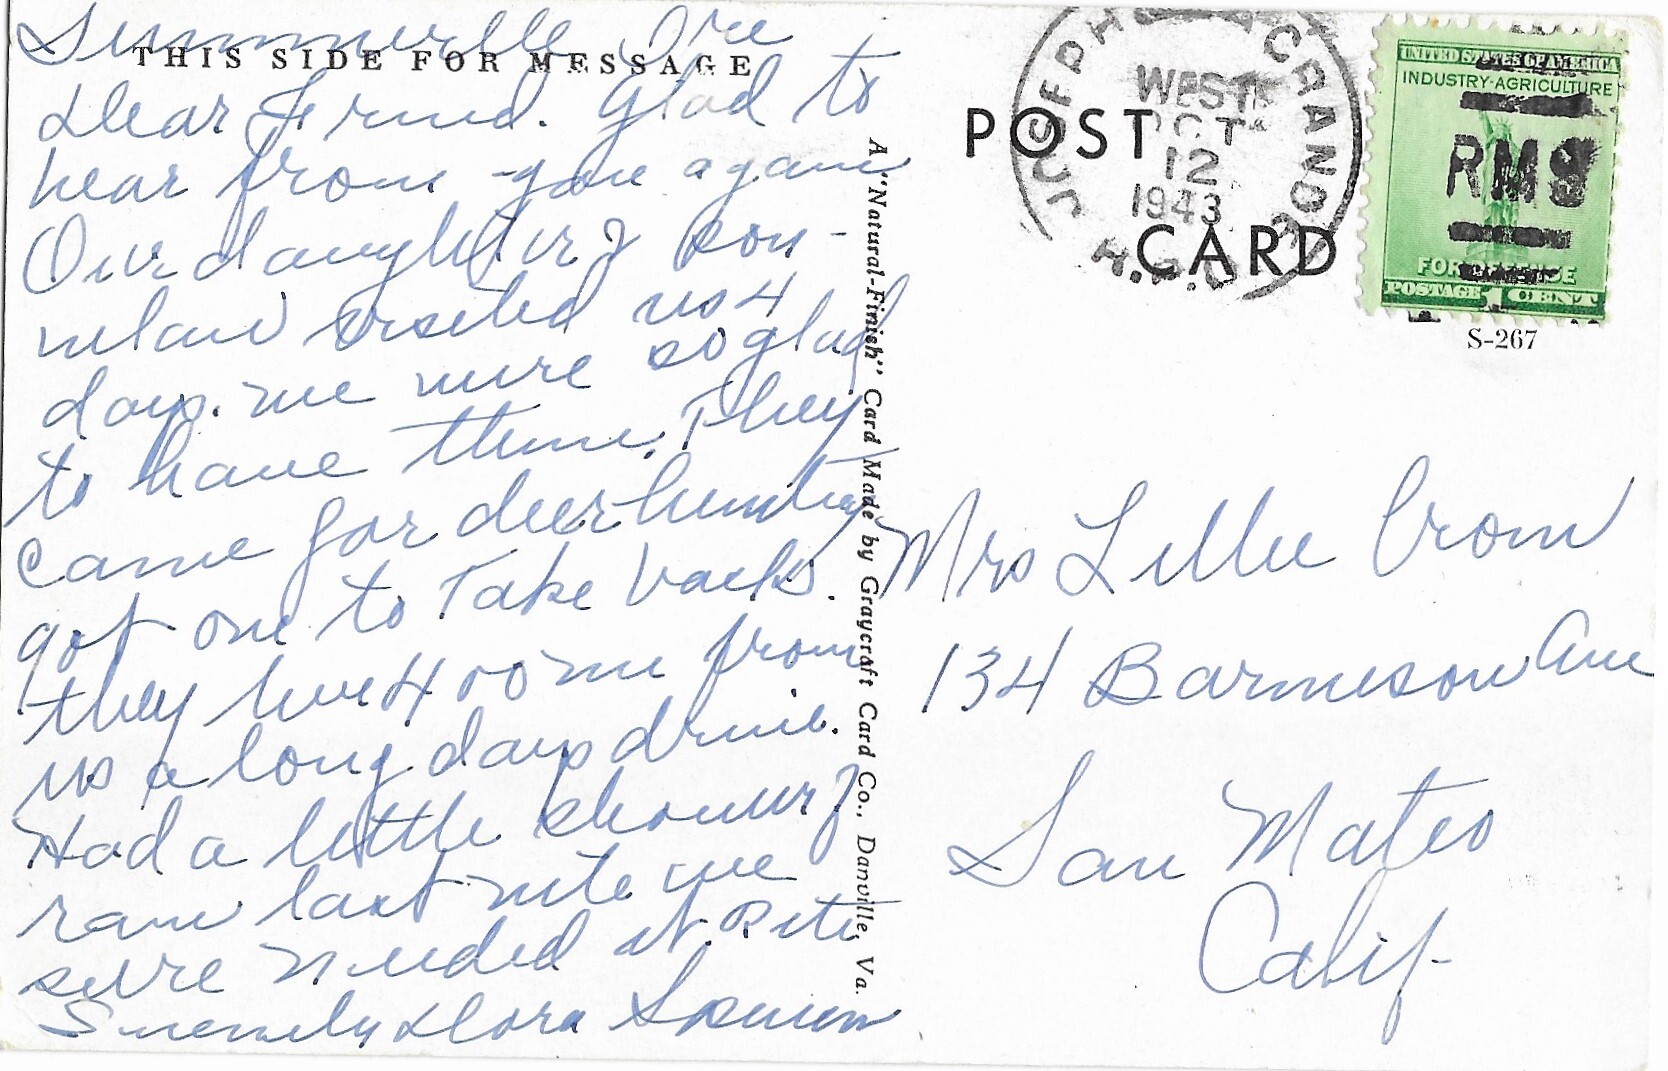 Summerville Ore
THIS SIDE FOR MESSAGE
Dear Friend. Glad to
hear from you again
Our daughter & son-
inlaw visited us 4
days. we were so glad
to have them. They
came for deer hunting
got one to Take back.
they live 400 mi from
us a long days drive.
Had a little shower of
rain last nite we
sure needed it.
Sincerely Dora
A "Natural-Finish" Card Made by Graycraft Card Co., Danville, Va.
POST CARD
JOSEPH & LAGRANDE
WEST
OCT
12
1943
R.P.O.
UNITED STATES OF AMERICA
INDUSTRY-AGRICULTURE
RMS
FOR DEFENSE
POSTAGE 1 CENT
S-267
Mrs Lillie Crom
134 Barneson Ave
San Mateo
Calif-